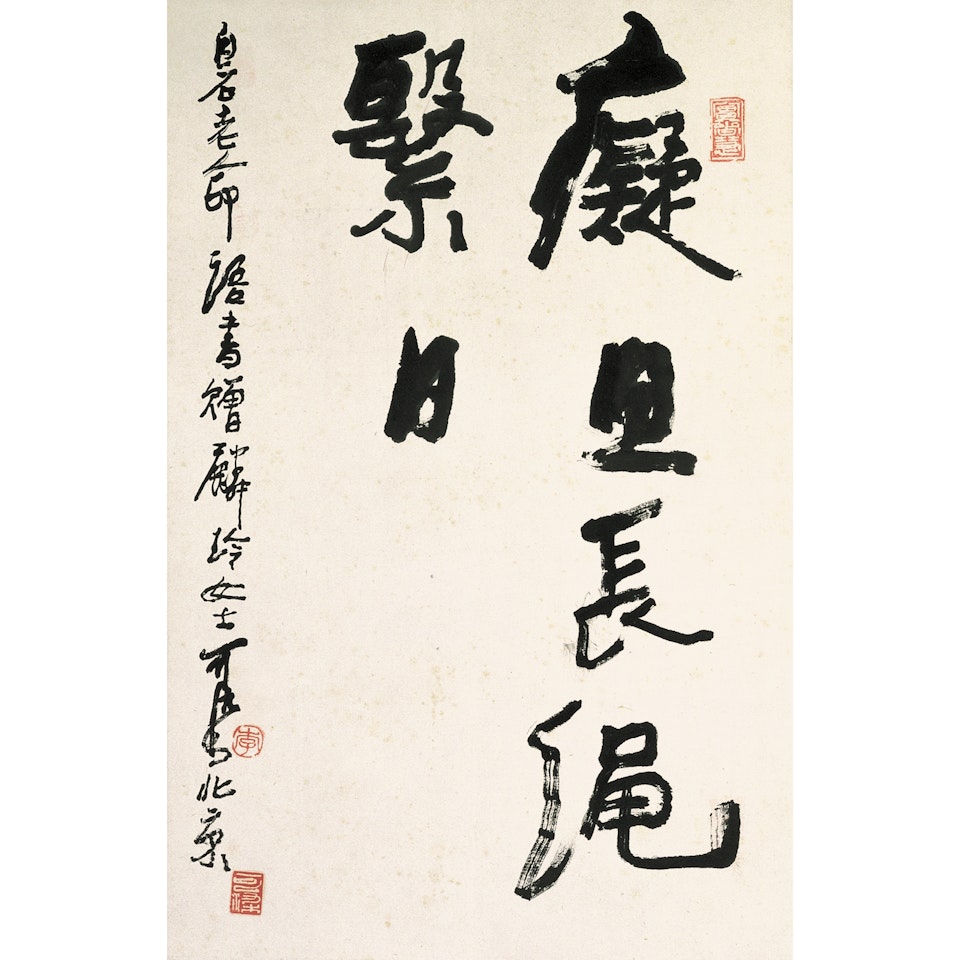 癡思長繩
繫日
白石老人印語書贈麟玲女士可染北京
李
可染